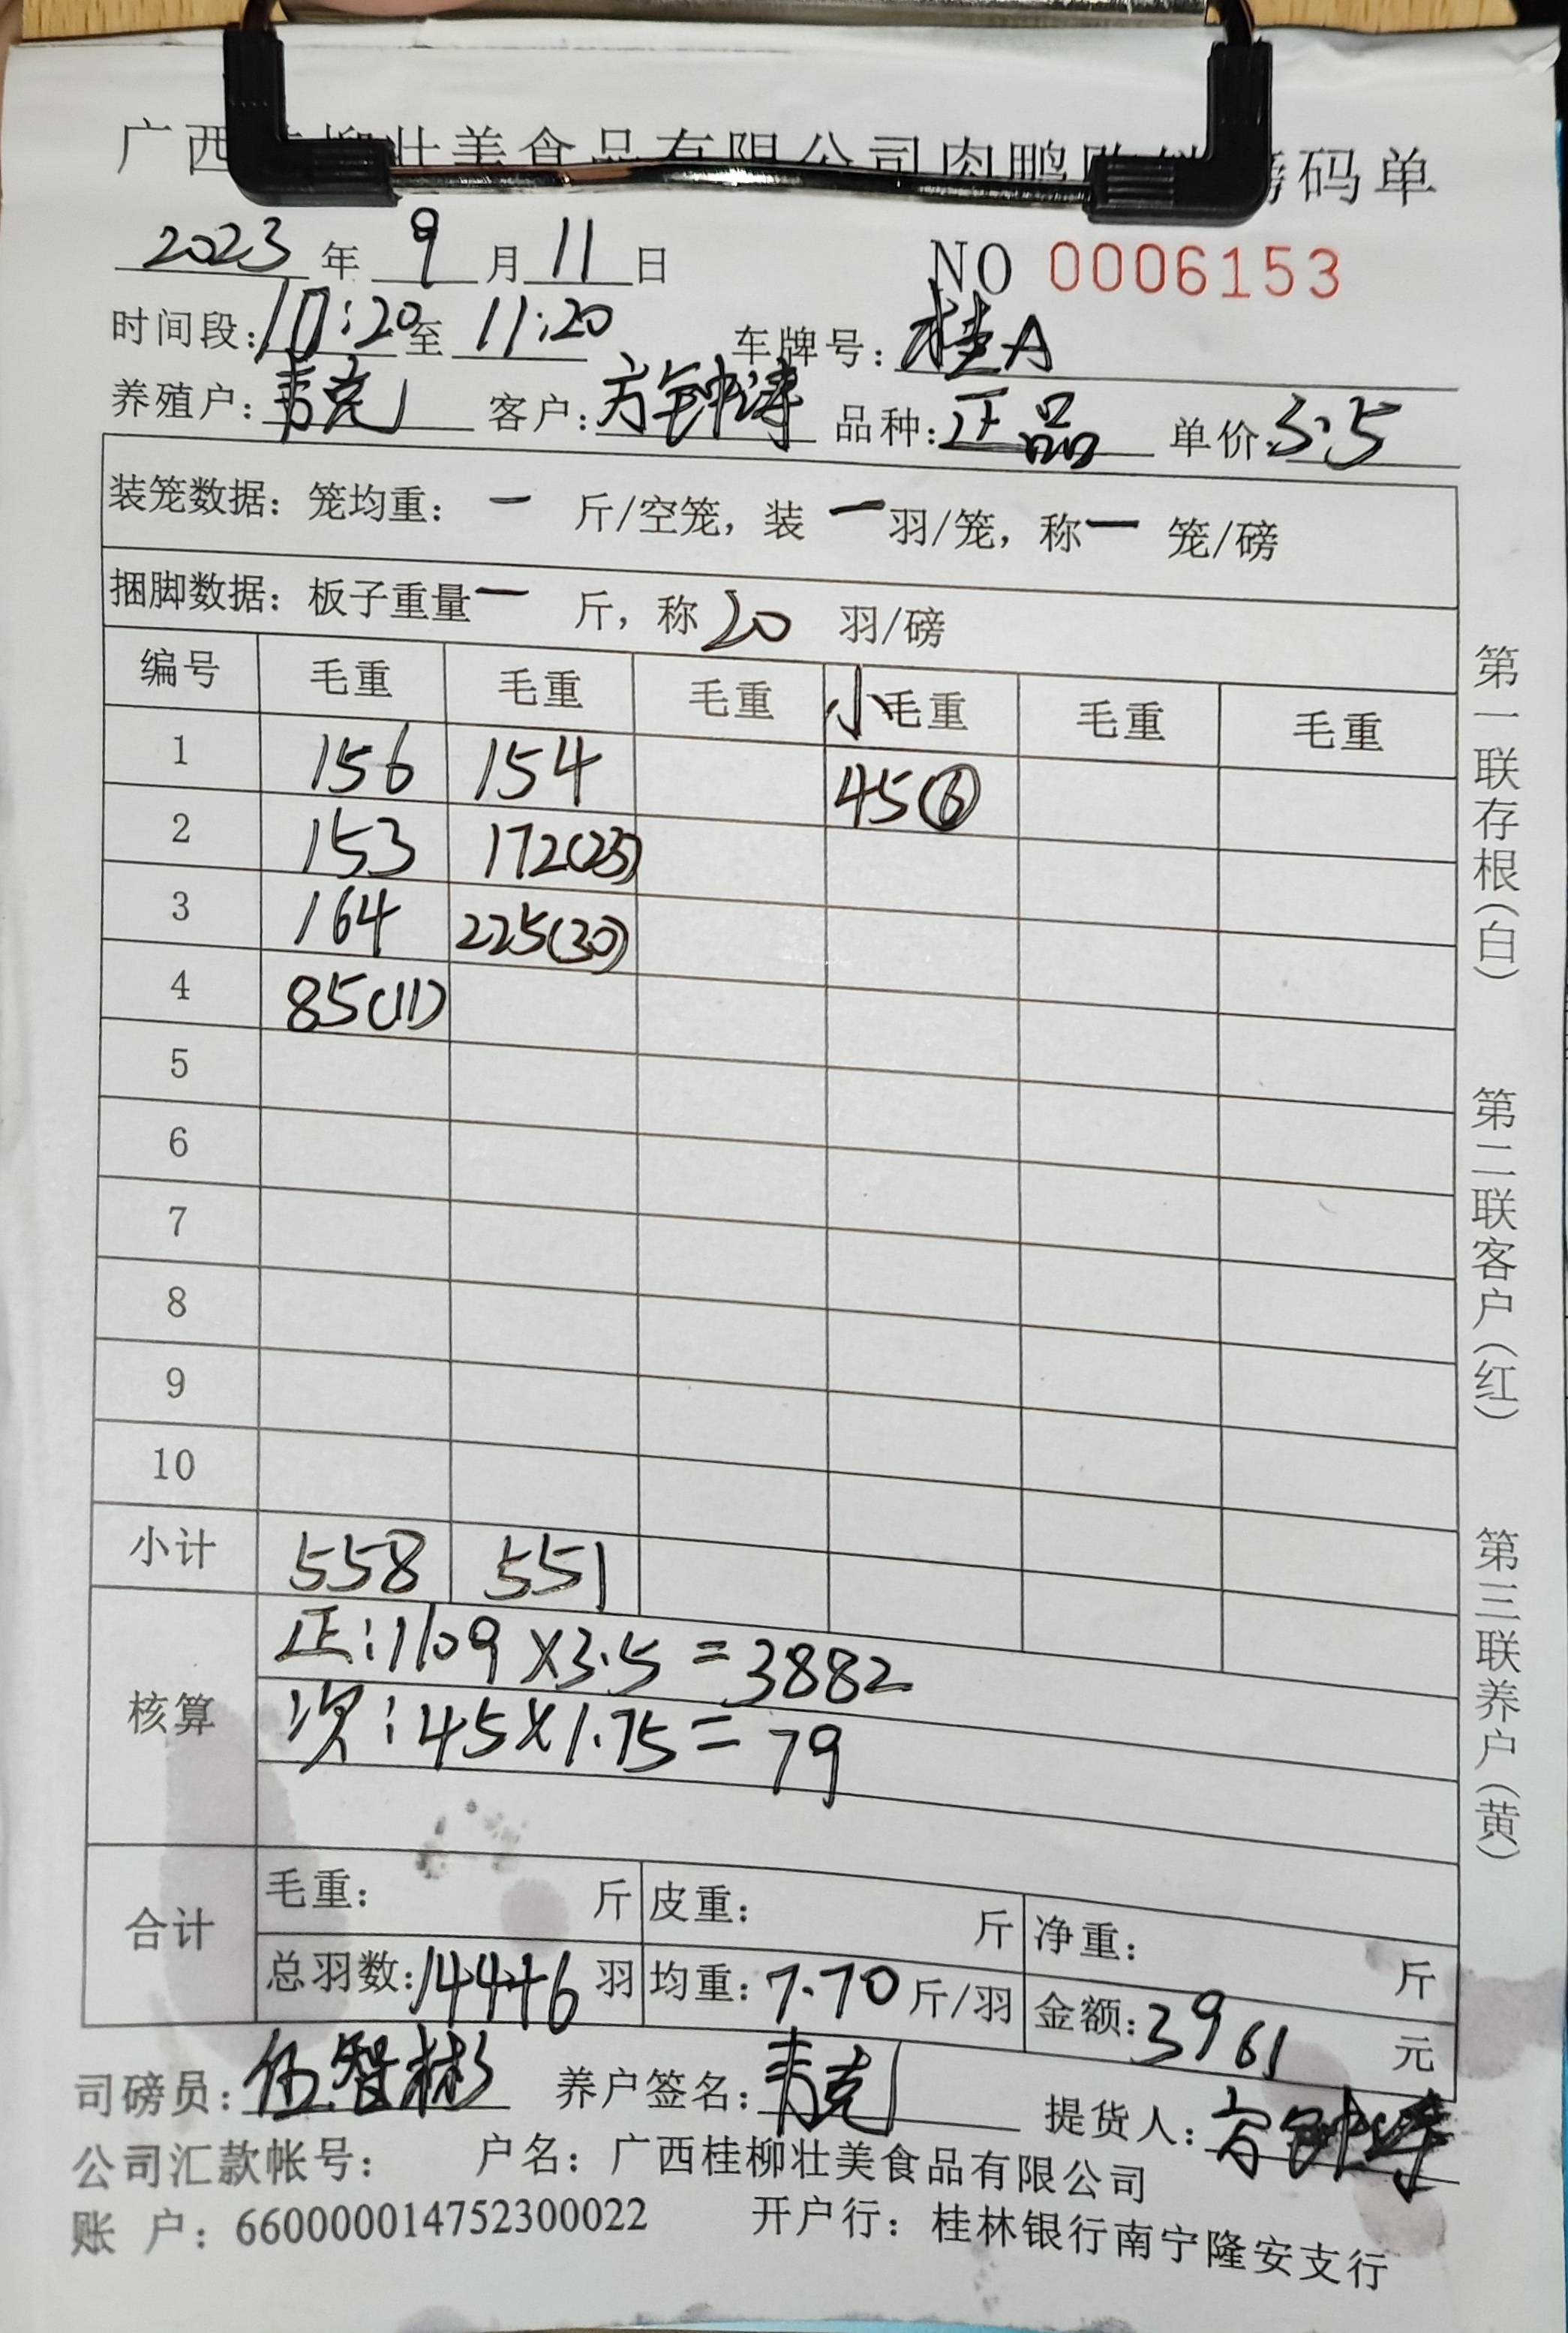 广西桂柳壮美食品有限公司肉鸭 磅码单
2023 年 9 月 11 日 NO 0006153
时间段: 10:20 至 11:20 车牌号: 桂A
养殖户: 韦克 客户: 方钟涛 品种: 正品 单价: 3.5
装笼数据: 笼均重: 一 斤/空笼, 装 一 羽/笼, 称 一 笼/磅
捆脚数据: 板子重量 一 斤, 称 20 羽/磅
编号 毛重 毛重 毛重 小毛重 毛重 毛重
1 156 154 45⑥
2 153 172(23)
3 164 225(30)
4 85(11)
5
6
7
8
9
10
小计 558 551
核算 正:1109×3.5=3882
次:45×1.75=79
合计 毛重: 斤 皮重: 斤 净重: 斤
总羽数: 144+6 羽 均重: 7.70 斤/羽 金额: 3961 元
司磅员: 伍智彬 养户签名: 韦克 提货人: 方钟涛
公司汇款帐号: 户名: 广西桂柳壮美食品有限公司
账 户: 660000014752300022 开户行: 桂林银行南宁隆安支行
第一联存根(白)
第二联客户(红)
第三联养户(黄)